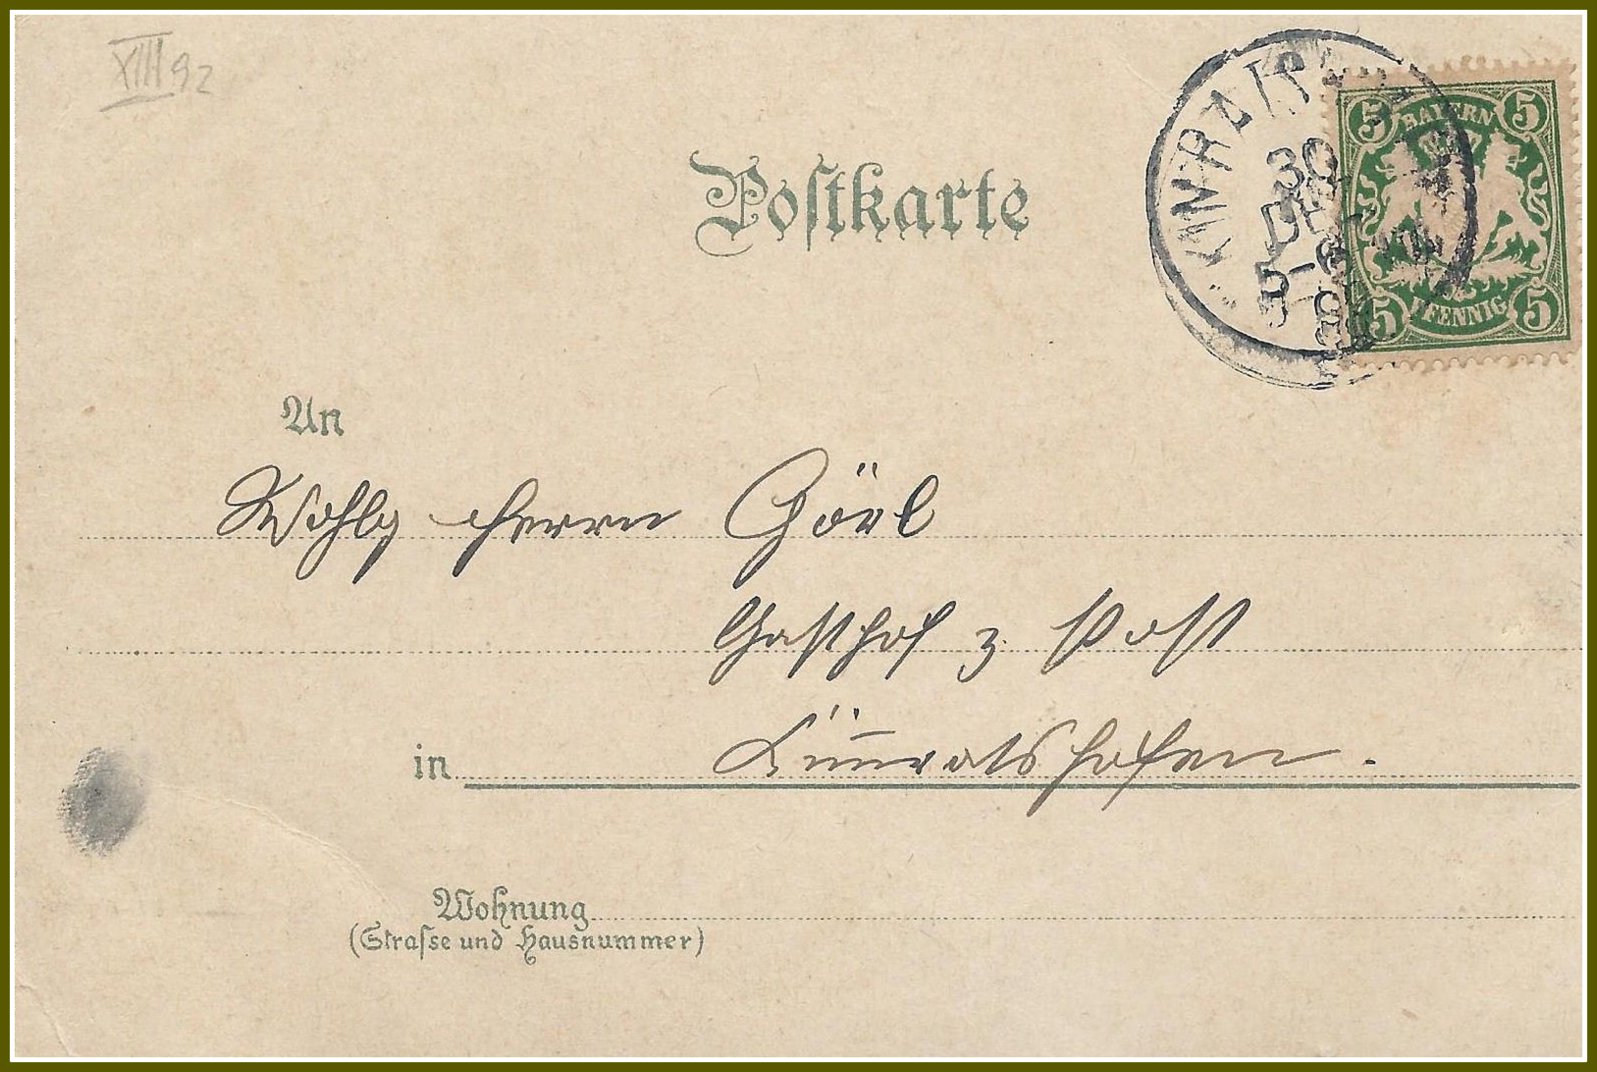 XIII 92
Postkarte
30
DEZ
5-6
5 BAYERN 5
5 PFENNIG 5
An
Wohlg Herrn Görl
Gasthof z Post
in Kimratshofen.
Wohnung
(Straſse und Hausnummer)